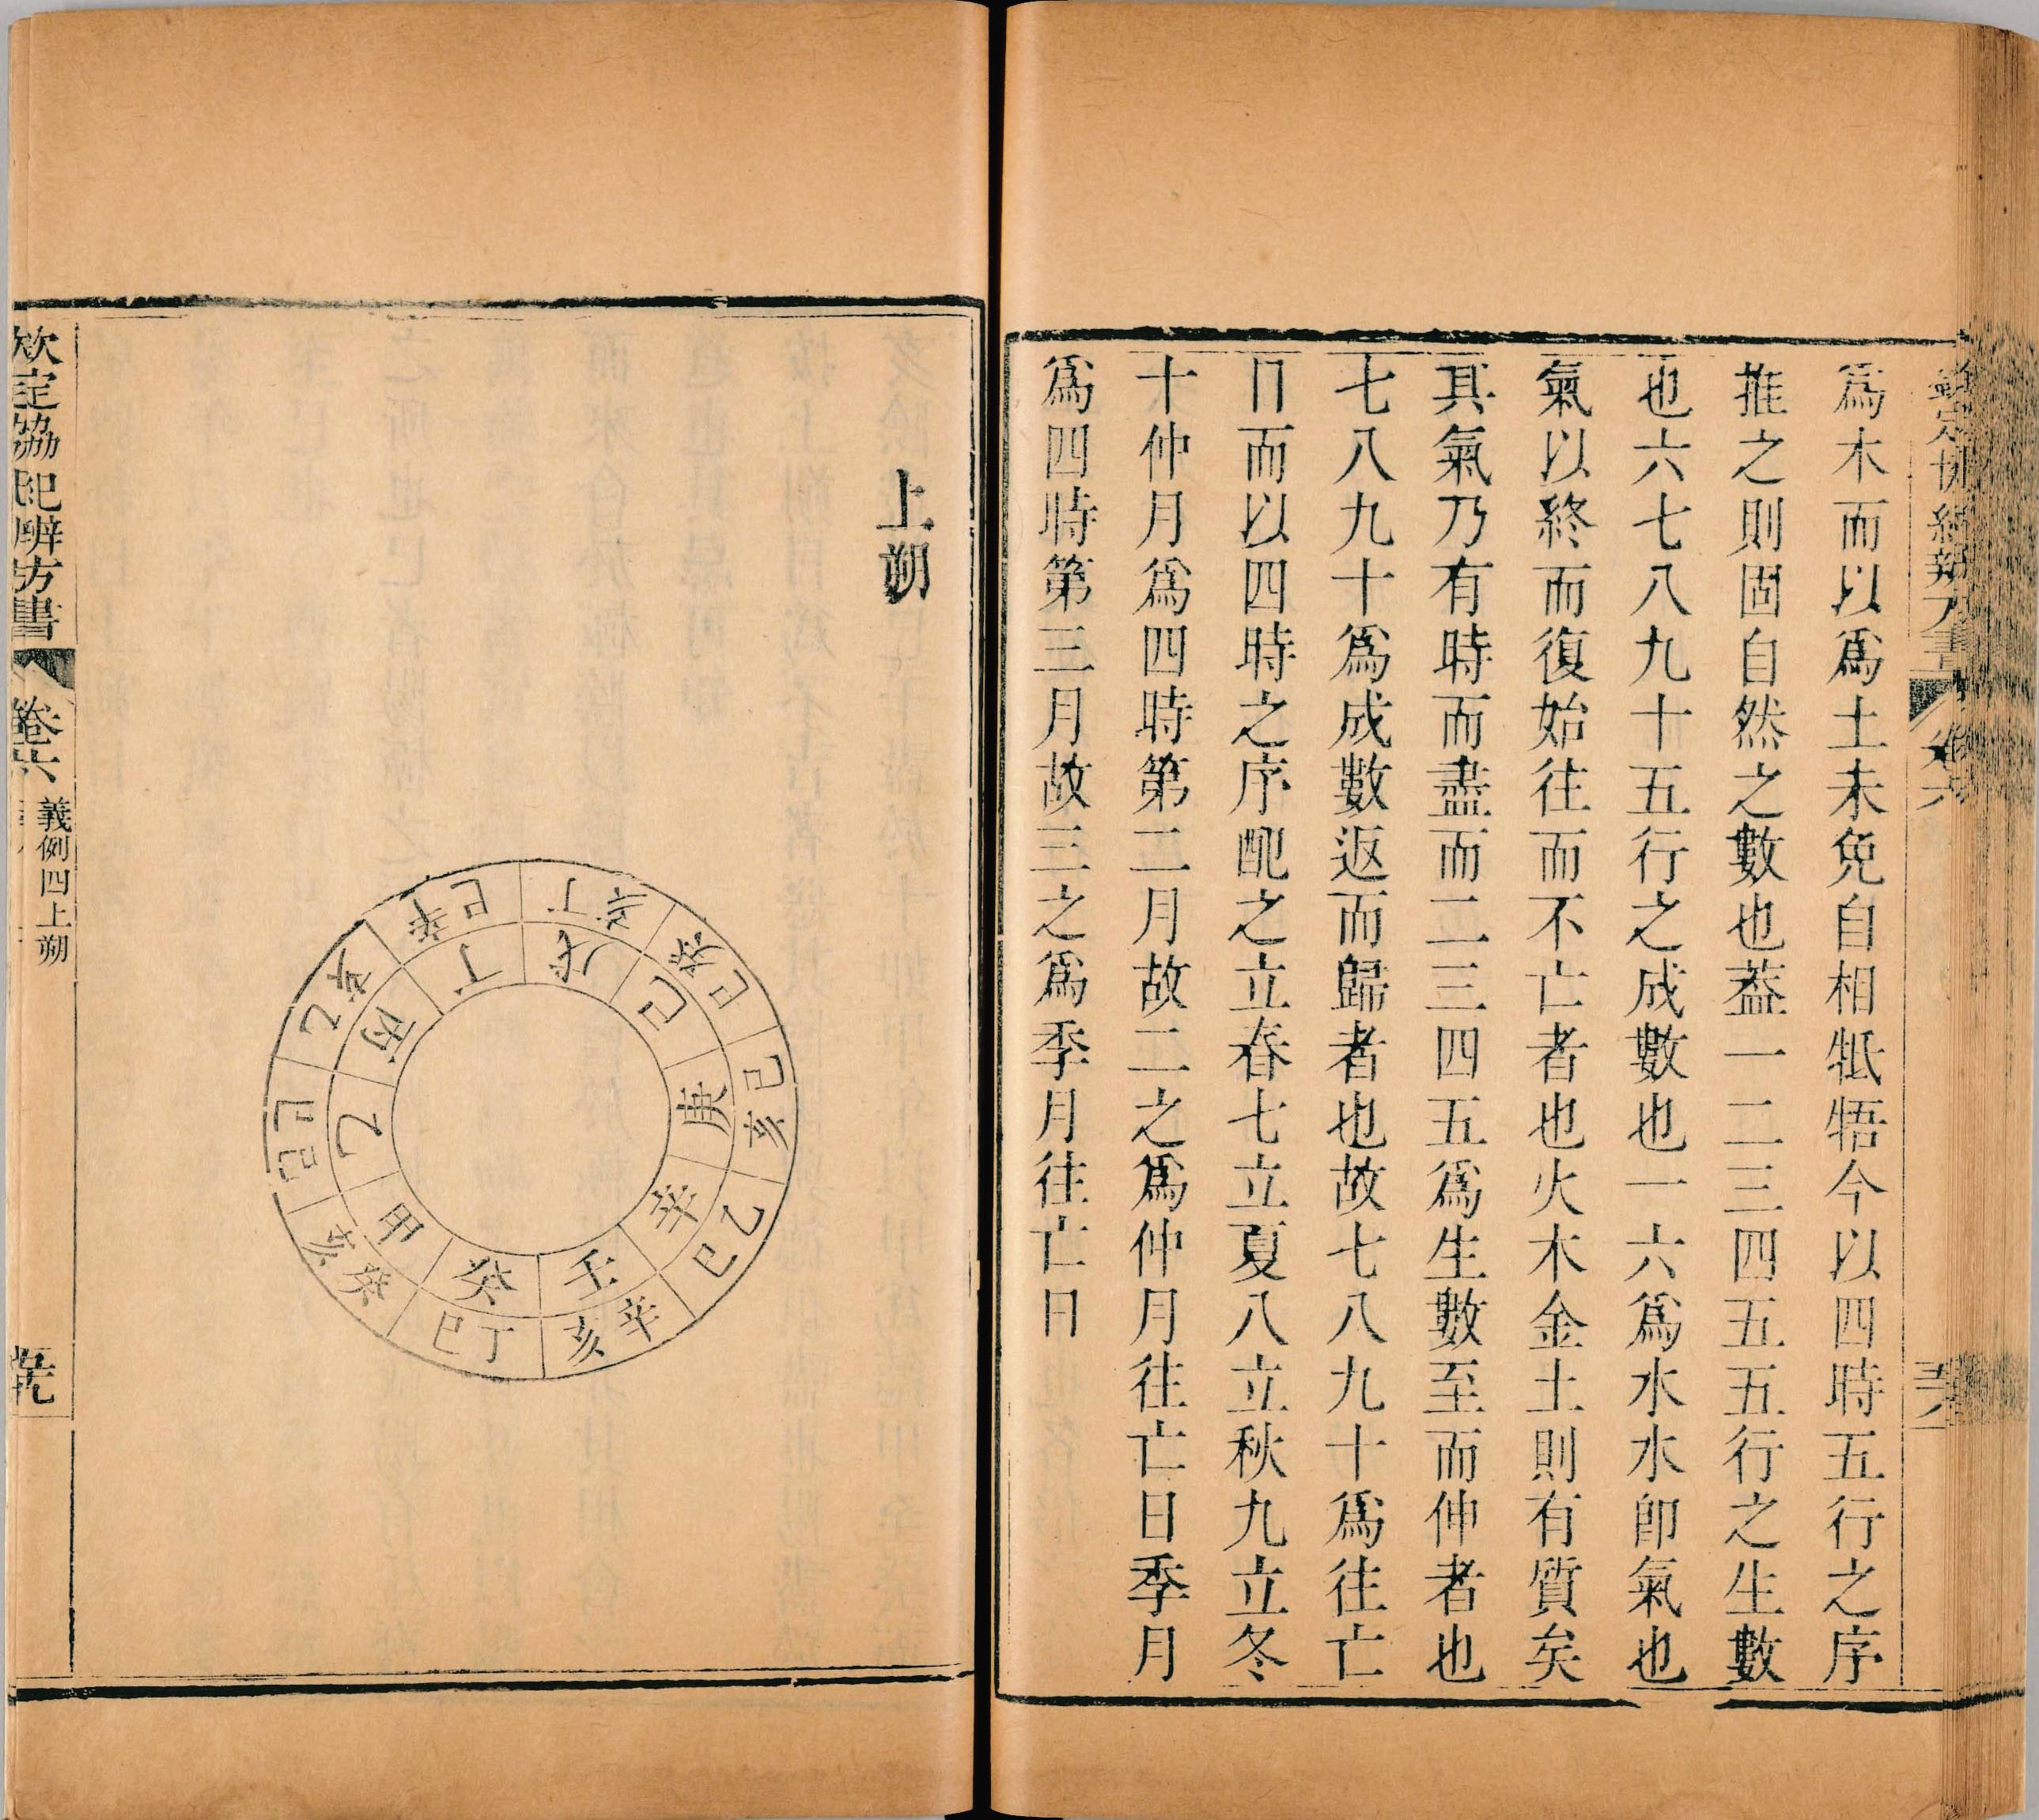 為木而以為土未免自相牴牾今以四時五行之序
推之則固自然之數也葢一二三四五五行之生數
也六七八九十五行之成數也一六為水水卽氣也
氣以終而復始往而不亡者也火木金土則有質矣
其氣乃有時而盡而二三四五為生數至而仲者也
七八九十為成數返而歸者也故七八九十為往亡
日而以四時之序配之立春七立夏八立秋九立冬
十仲月為四時第二月故二之為仲月往亡日季月
為四時第三月故三之為季月往亡日
上朔
甲 癸亥
乙 己巳
丙 乙亥
丁 辛巳
戊 丁亥
己 癸巳
庚 己亥
辛 乙巳
壬 辛亥
癸 丁巳
欽定協紀辨方書
卷六
義例四上朔